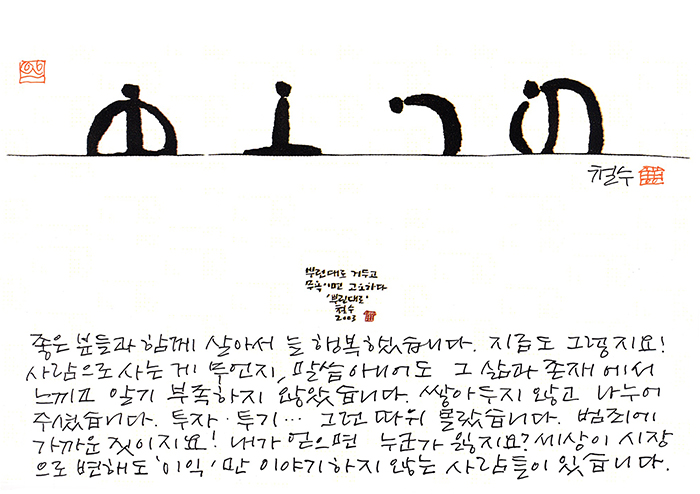 철수
뿌린대로 거두고
무욕이면 고요하다
'뿌린대로'
철수
2003
좋은 분들과 함께 살아서 늘 행복했습니다. 지금도 그렇지요!
사람으로 사는 게 무언지, 말씀 아니어도 그 삶과 존재에서
느끼고 알기 부족하지 않았습니다. 쌓아두지 않고 나누어
주셨습니다. 투자·투기… 그런 따위 몰랐습니다. 범죄에
가까운 짓이지요! 내가 얻으면 누군가 잃지요? 세상이 시장
으로 변해도 '이익'만 이야기하지 않는 사람들이 있습니다.